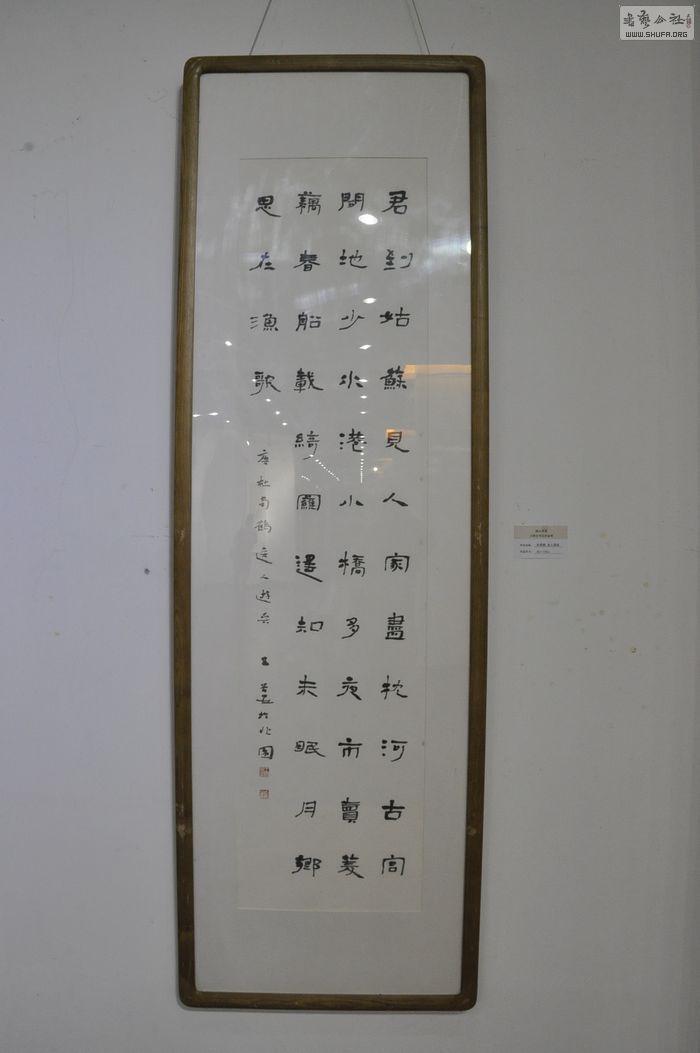 君到姑蘇見人家盡枕河古宫
閒地少水港小橋多夜市賣菱
藕春船載綺羅遥知未眠月鄉
思在漁歌
唐杜荀鶴送人遊吳
WWW.SHUFA.ORG